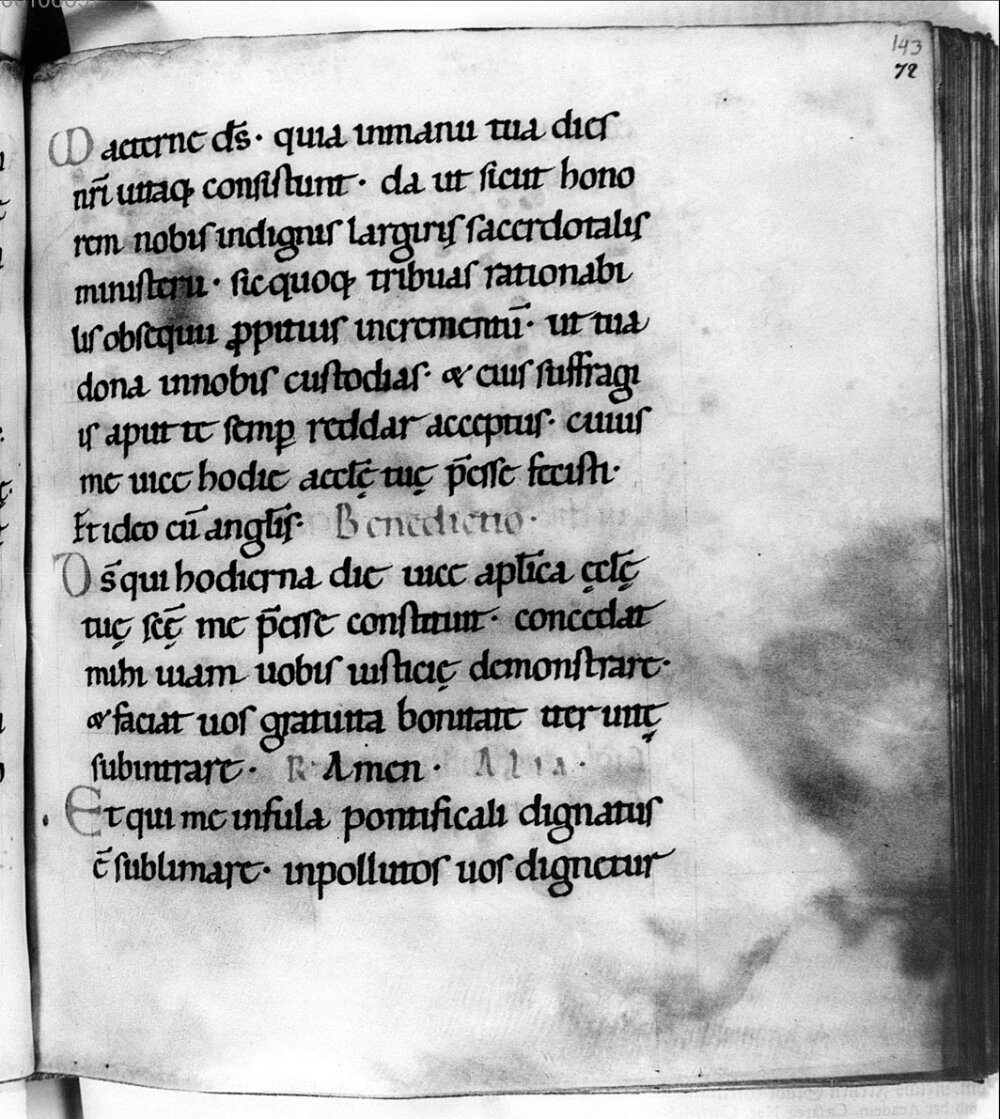 143
72
VD aeterne ds̄· quia inmanu tua dies
nr̄i uitaq; consistunt· da ut sicut hono
rem nobis indignis largiris sacerdotalis
ministerii· sic quoq; tribuas rationabi
lis obsequii ꝓpitius incrementū· ut tua
dona innobis custodias· & eius suffragi
is aput te semꝑ reddar acceptus· cuius
me uice hodie aeclę̄ tuę p̄esse fecisti·
Et ideo cū angl̄is· Benedictio·
Ds̄ qui hodierna die uice apl̄ica ęclę̄
tuę scę̄ me p̄esse constituit· concedat
mihi uiam uobis iusticię demonstrare·
& faciat uos gratuita bonitate iter uitę
subintrare· R· Amen· Alia·
Et qui me infula pontificali dignatus
ē sublimare· inpollutos uos dignetur